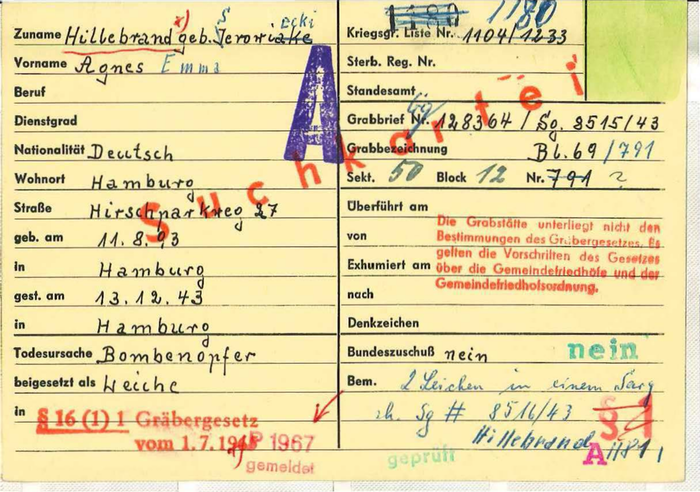 Zuname Hillebrand geb. Jeroriake ecki
Vorname Agnes Emma
Beruf
Dienstgrad
Nationalität Deutsch
Wohnort Hamburg
Straße Hirschparkweg 27
geb. am 11.8.93
in Hamburg
gest. am 13.12.43
in Hamburg
Todesursache Bombenopfer
beigesetzt als Leiche
in
§ 16 (1) 1 Gräbergesetz
vom 1.7.1965
1967
gemeldet
A
Suchkartei
1180 1180
Kriegsgr. Liste Nr. 1104/1233
Sterb. Reg. Nr.
Standesamt
Grabbrief Nr. 128364 / Sg. 8515/43
Grabbezeichnung Bl. 69 /791
Sekt. 50 Block 12 Nr. 791 ?
Überführt am
von
Exhumiert am
nach
Die Grabstätte unterliegt nicht den
Bestimmungen des Gräbergesetzes. Es
gelten die Vorschriften des Gesetzes
über die Gemeindefriedhöfe und der
Gemeindefriedhofsordnung.
Denkzeichen
Bundeszuschuß nein nein
Bem. 2 Leichen in einem Sarg
Sg # 8516/43 § 1
Hillebrand A 1181
geprüft